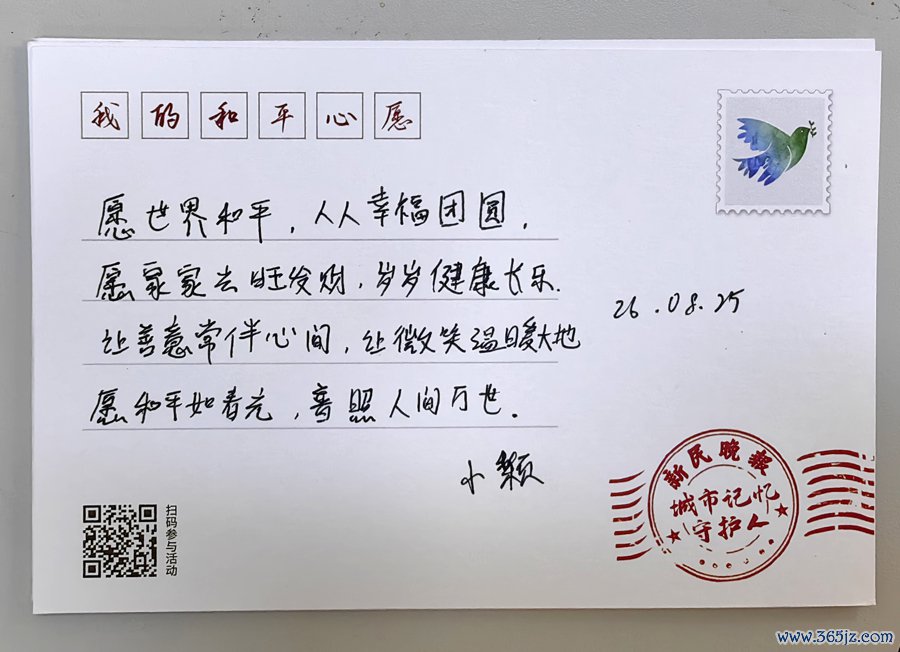 我的和平心愿
愿世界和平，人人幸福团圆，
愿家家去旺发财，岁岁健康长乐.
让善意常伴心间，让微笑温暖大地
愿和平如春光，喜照人间万世.
小颖
26.08.25
扫码参与活动
新民晚报
城市记忆
守护人
www.365jz.com